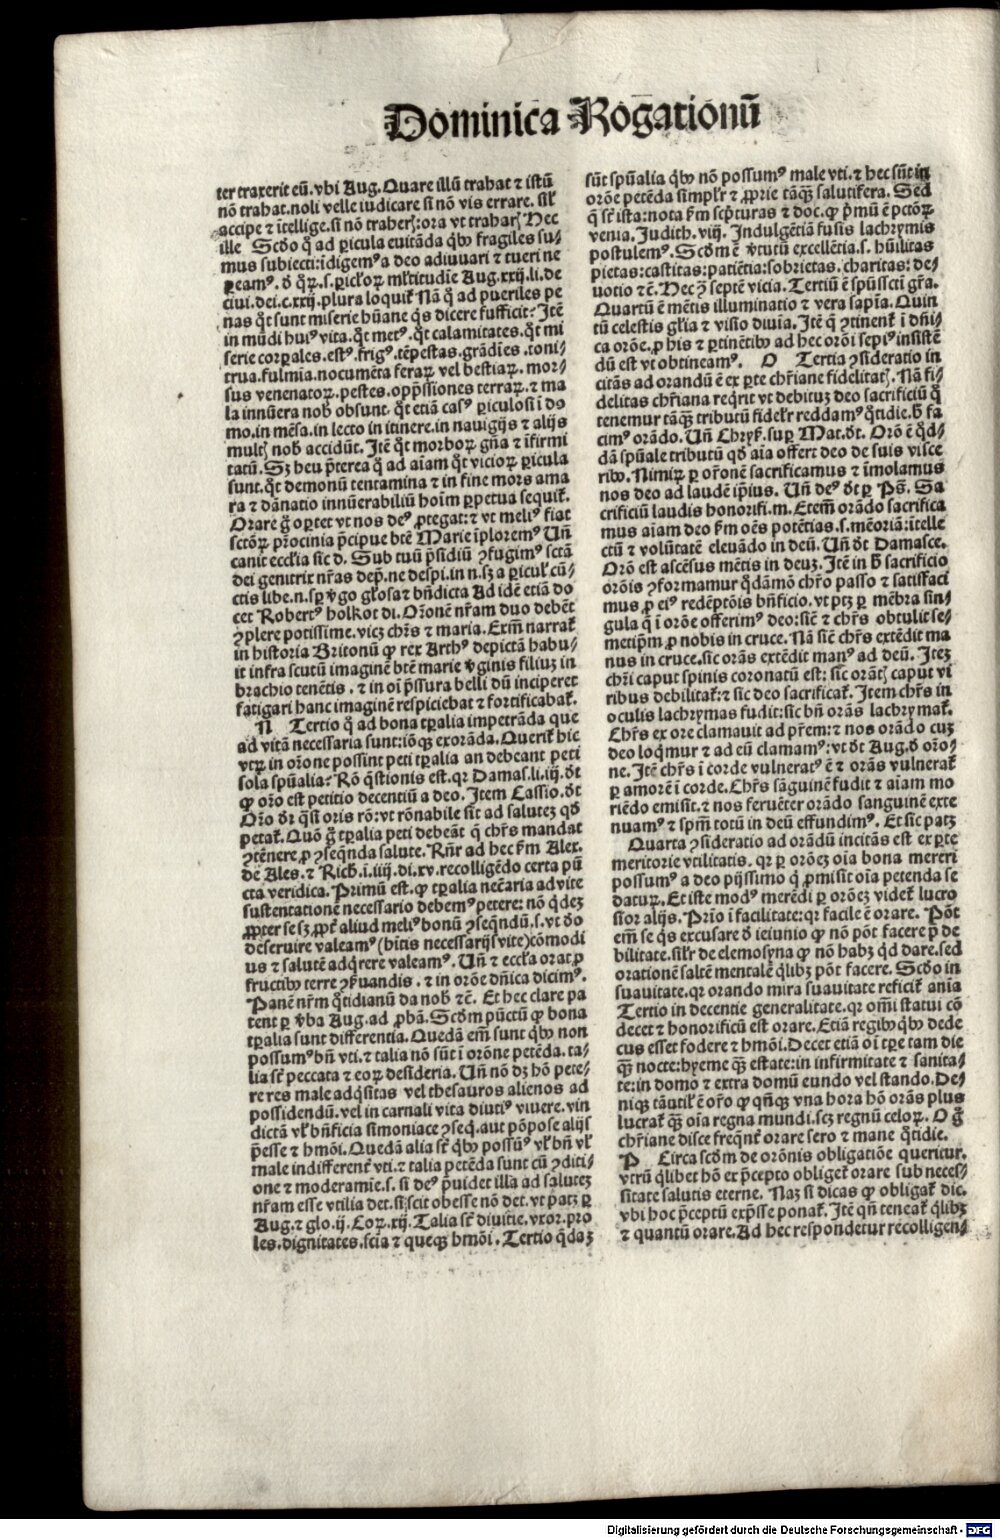 Dominica Rogationū
ter traxerit eū. vbi Aug. Quare illū trahat ⁊ istū
nō trahat. noli velle iudicare si nō vis errare. sil'
accipe ⁊ ītellige. si nō traherꝭ: ora vt traharꝭ Hec
ille Scd̄o q̄ ad ꝑicula euitāda qb̄ꝰ fragiles su-
mus subiecti: īdigemꝰ a deo adiuuari ⁊ tueri ne
ꝑeamꝰ. d̄ qꝝ. s. ꝑicl'oꝝ ml'titudīe Aug. xxij. li. de
ciui. dei. c. xxij. plura loquit̄ Nā q̄ ad pueriles pe
nas q̄t sunt miserie hūane qs dicere sufficit: Itē
in mūdi huiꝰ vita. q̄t metꝰ. q̄t calamitates. q̄t mi
serie corꝑales. estꝰ. frigꝰ. tēpestas. grādīes. toni-
trua. fulmīa. nocumēta feraꝝ vel bestiaꝝ. mor-
sus venenatoꝝ. pestes. opp̄ssiones terraꝝ. ⁊ ma
la innūera nob̄ obsunt. q̄t etiā casꝰ ꝑiculosi ī do
mo. in mēsa. in lecto in itinere. in nauigijs ⁊ alijs
multꝭ nob̄ accidūt. Itē q̄t morboꝝ gn̄a ⁊ īfirmi
tatū. Sꝫ heu p̄terea q̄ ad aīam q̄t vicioꝝ ꝑicula
sunt. q̄t demonū tentamina ⁊ in fine mors ama
ra ⁊ dānatio innūerabiliū hoīm ꝑpetua sequit̄.
Orare ḡ oꝑtet vt nos deꝰ ꝓtegat: ⁊ vt meliꝰ fiat
sctōꝝ p̄rocinia p̄cipue btē Marie īploremꝰ Un̄
canit eccl'ia sic d. Sub tuū p̄sidiū ꝯfugimꝰ sctā
dei genitrix nr̄as dep̄. ne despi. in n. sꝫ a ꝑicul' cū-
ctis libe. n. sꝑ v̄go gl'osa ⁊ bn̄dicta Ad idē etiā do
cet Robertꝰ holkot di. Orōne nr̄am duo debēt
ꝯplere potissime. vicꝫ chr̄s ⁊ maria. Exm̄ narrat̄
in historia Britonū ꝙ rex Arthꝰ depictā habu-
it infra scutū imaginē btē marie v̄ginis filiuꝫ in
brachio tenētis. ⁊ in oī p̄ssura belli dū inciperet
fatigari hanc imaginē respiciebat ⁊ fortificabat̄.
N Tertio q̄ ad bona tꝑalia impetrāda que
ad vitā necessaria sunt: iōqꝫ exorāda. Querit̄ hic
vtꝝ in orōne possint peti tꝑalia an debeant peti
sola spūalia? Rō q̄stionis est. qꝛ Damas. li. iij. d̄t
ꝙ orō est petitio decentiū a deo. Item Cassio. d̄t
Orō dr̄ q̄si oris rō: vt rōnabile sit ad salutez qd̄
petat̄. Quō ḡ tꝑalia peti debeāt q̄ chr̄s mandat
ꝯtēnere ꝓ ꝯseqn̄da salute. Rn̄r ad hec ẜm Alex.
de Ales. ⁊ Rich. ī. iiij. di. xv. recolligēdo certa pū
cta veridica. Primū est. ꝙ tꝑalia necc̄aria ad vite
sustentationē necessario debemꝰ petere: nō q̄dez
ꝓpter se sꝫ ꝓut aliud meliꝰ bonū ꝯseqn̄dū. s. vt d̄o
deseruire valeamꝰ (hitis necessarijs vite) cōmodi
us ⁊ salutē adq̄rere valeamꝰ. Un̄ ⁊ eccl'a orat ꝓ
fructibꝰ terre ꝯẜuandis. ⁊ in orōe dn̄ica dicimꝰ.
Panē nr̄m q̄tidianū da nob̄ ⁊c̄. Et hec clare pa
tent ꝑ v̄ba Aug. ad ꝓbā. Scd̄m pūctū ꝙ bona
tꝑalia sunt differentia. Quedā em̄ sunt qb̄ꝰ non
possumꝰ bn̄ vti. ⁊ talia nō sūt ī orōne petēda. ta-
lia st̄ peccata ⁊ eoꝝ desideria. Un̄ nō dꝫ hō pete-
re res male adq̄sitas vel thesauros alienos ad
possidendū. vel in carnali vita diutiꝰ viuere. vin
dictā vl' bn̄ficia simoniace ꝯseq̄. aut pōpose alijs
p̄esse ⁊ hmōi. Quedā alia st̄ qb̄ꝰ possūꝰ vl' bn̄ vl'
male indifferent̄ vti. ⁊ talia petēda sunt cū ꝯditi-
one ⁊ moderamīe. s. si deꝰ p̄uidet illa ad salutez
nr̄am esse vtilia det. si scit obesse nō det. vt patꝫ ꝑ
Aug. ⁊ glo. ij. Coꝝ. xij. Talia st̄ diuitie. vxor. pro
les. dignitates. scīa ⁊ queqꝫ hmōi. Tertio q̄daꝫ
sūt spūalia qb̄ꝰ nō possumꝰ male vti. ⁊ hec sūt in
orōe petēda simplr̄ ⁊ ꝓprie tāqꝫ salutifera. Sed
q̄ st̄ ista: nota ẜm sc̄pturas ⁊ doc. ꝙ p̄mū ē pctōꝝ
venia. Judith. viij. Indulgētiā fusis lachrymis
postulemꝰ. Scd̄m ē v̄tutū excellētia. s. hūilitas
pietas: castitas: patiētia: sobrietas. charitas: de-
uotio ⁊c̄. Hec ꝫ septē vicia. Tertiū ē spūssctī gr̄a.
Quartū ē mētis illuminatio ⁊ vera sapīa. Quin
tū celestis gl'ia ⁊ visio diuīa. Itē q̄ ꝯtinent̄ ī dn̄i-
ca orōe. ꝓ his ⁊ ꝑtinētibꝰ ad hec orōi sepiꝰ insistē
dū est vt obtineamꝰ. O Tertia ꝯsideratio in
citās ad orandū ē ex ꝑte chr̄iane fidelitatꝭ. Nā fi-
delitas chr̄iana reqrit vt debituꝫ deo sacrificiū q̄
tenemur tāqꝫ tributū fidelr̄ reddamꝰ q̄tidie. h̄ fa
cimꝰ orādo. Un̄ Chrys. suꝑ Mat. d̄t. Orō ē q̄d-
dā spūale tributū qd̄ aīa offert deo de suis visce
ribꝰ. Nimiꝝ ꝑ orōnē sacrificamus ⁊ īmolamus
nos deo ad laudē ip̄ius. Un̄ deꝰ d̄t ꝑ Ps. Sa
crificiū laudis honorifi. m. Etem̄ orādo sacrifica
mus aīam deo ẜm oēs potētias. s. mēoriā: ītelle
ctū ⁊ volūtatē eleuādo in deū. Un̄ d̄t Damasce.
Orō est ascēsus mētis in deuꝫ. Itē in h̄ sacrificio
orōis ꝯformamur q̄dāmō chr̄o passo ⁊ satisfaci
mus ꝓ eiꝰ redēptōis bn̄ficio. vt ptꝫ ꝑ mēbra sin-
gula q̄ ī orōe offerimꝰ deo: siē ⁊ chr̄s obtulit se-
metip̄m ꝓ nobis in cruce. Nā siē chr̄s extēdit ma
nus in cruce. sic orās extēdit manꝰ ad deū. Itez
chr̄i caput spinis coronatū est: sic orātꝭ caput vi
ribus debilitat̄: ⁊ sic deo sacrificat̄. Item chr̄s in
oculis lachrymas fudit: sic bn̄ orās lachrymat̄.
Chr̄s ex ore clamauit ad pr̄em: ⁊ nos orādo cuꝫ
deo loqmur ⁊ ad eū clamamꝰ: vt d̄t Aug. d̄ orō-
ne. Itē chr̄s ī corde vulneratꝰ ē ⁊ orās vulnerat̄
ꝑ amorē ī corde. Chr̄s sāguinē fudit ⁊ aīam mo
riēdo emisit. ⁊ nos feruēter orādo sanguinē exte
nuamꝰ ⁊ spm̄ totū in deū effundimꝰ. Et sic patꝫ
Quarta ꝯsideratio ad orādū incitās est ex ꝑte
meritorie vtilitatis. qꝛ ꝑ orōeꝫ oīa bona mereri
possumꝰ a deo pijssimo q̄ ꝓmisit oīa petenda se
datuꝝ. Et iste modꝰ merēdi ꝑ orōeꝫ videt̄ lucro
sior alijs. Prīo ī facilitate: qꝛ facile ē orare. Pōt
em̄ se q̄s excusare d̄ ieiunio ꝙ nō pōt facere p̄ de
bilitate. silr̄ de elemosyna ꝙ nō habꝫ qd̄ dare. sed
orationē saltē mentalē qlibꝫ pōt facere. Scd̄o in
suauitate. qꝛ orando mira suauitate reficit̄ anīa
Tertio in decentie generalitate. qꝛ om̄i statui cō
decet ⁊ honorificū est orare. Etiā regibꝰ qb̄ꝰ dede
cus esset fodere ⁊ hmōi. Decet etiā oī tꝑe tam die
qꝫ nocte: hyeme qꝫ estate: in infirmitate ⁊ sanita-
te: in domo ⁊ extra domū eundo vel stando. De-
niqꝫ tāutil' ē orō ꝙ qn̄qꝫ vna hora hō orās plus
lucrat̄ qꝫ oīa regna mundi. scꝫ regnū celoꝝ. O ḡ
chr̄iane disce freqn̄t̄ orare sero ⁊ mane q̄tidie.
P Circa scd̄m de orōnis obligatiōe queritur.
vtrū qlibet hō ex p̄cepto obliget̄ orare sub neces-
sitate salutis eterne. Naꝫ si dicas ꝙ obligat̄ dic.
vbi hoc p̄ceptū exp̄sse ponat̄. Itē qn̄ teneat̄ qlibꝫ
⁊ quantū orare. Ad hec respondetur recolligen-
Digitalisierung gefördert durch die Deutsche Forschungsgemeinschaft - DFG